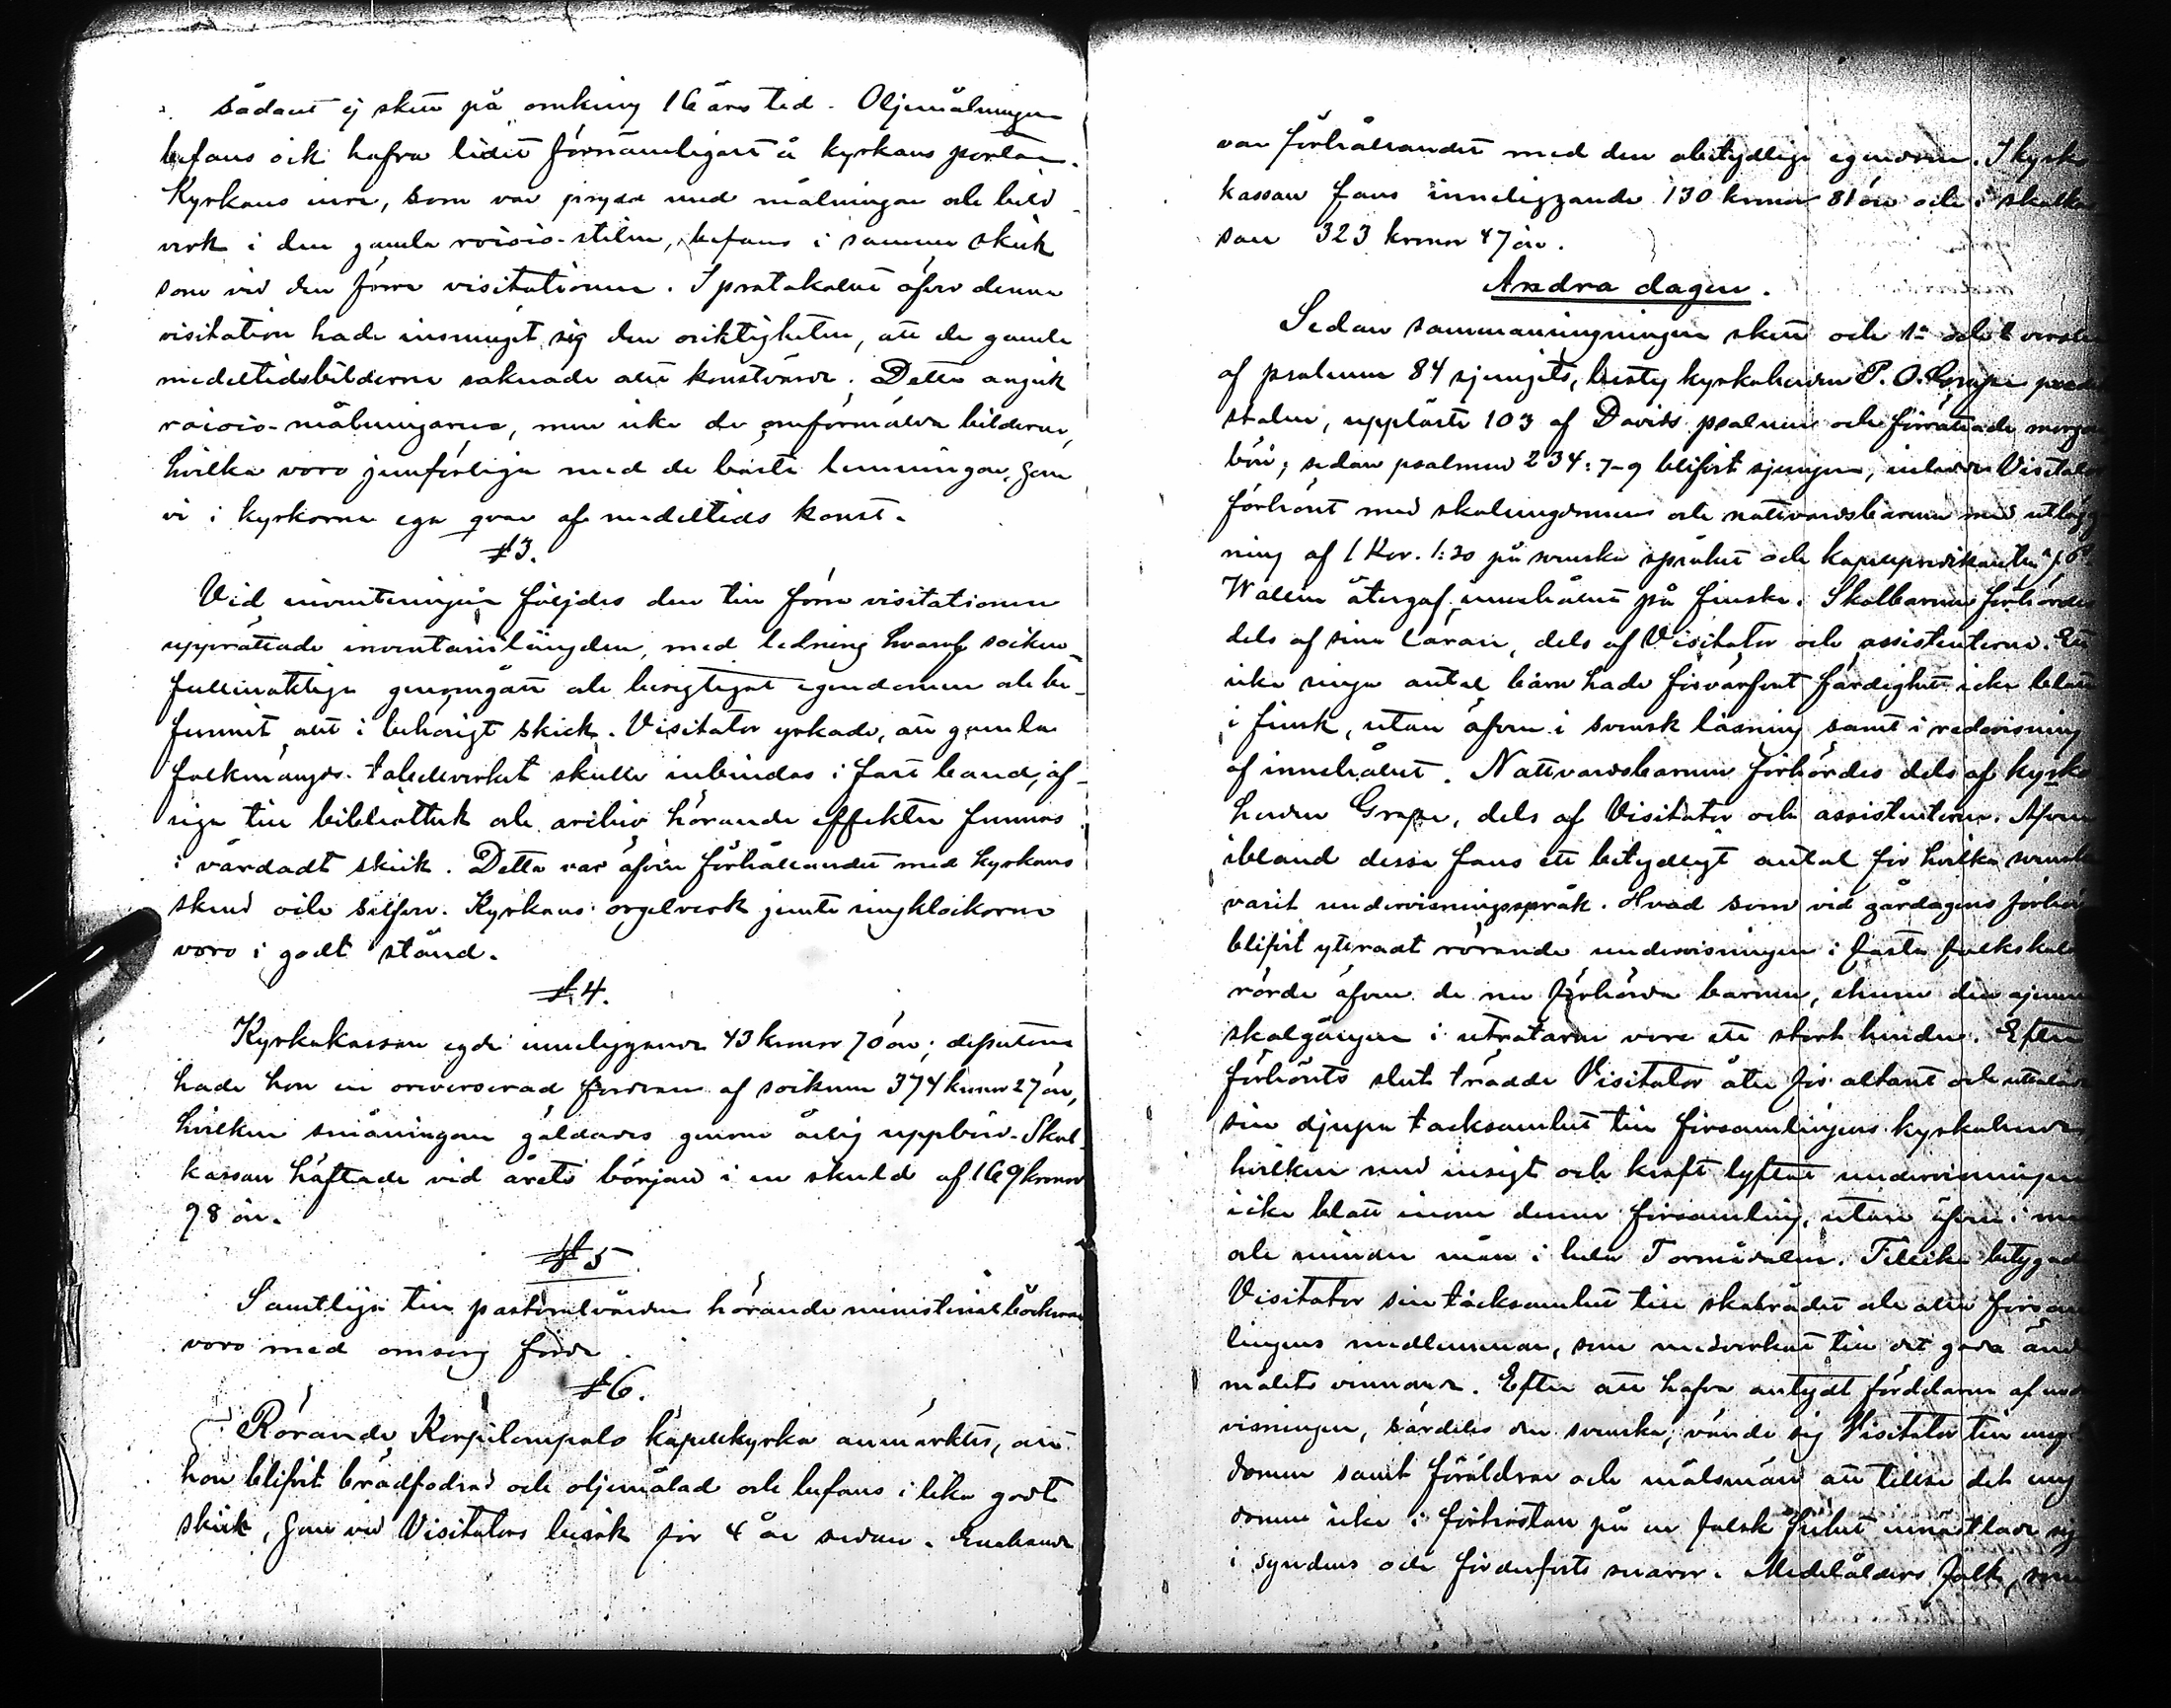 sådant ej skett på omkring 16 års tid. Oljemålningen
befans ock hafva lidit förnämligast å kyrkans portar.
Kyrkans inre, som var prydd med målningar och bild
verk i den gamla rococo-stilen, befans i samma skick
som vid den förra visitationen. I protokollet öfver denna
visitation hade insmuget sig den oriktigheten, att de gamla
medeltidsbilderna saknade allt konstvärde. Detta angick
rococo-målningarne, men icke de omförmälda bilderne,
hvilka voro jemförliga med de bästa lemningar, som
vi i kyrkorna ega qvar af medeltids konst.
§ 3.
Vid inventeringen följdes den till förra visitationen
upprättade inventarielängden, med ledning hvaraf socken-
fullmäktige genomgått och besigtigat egendomen och be-
funnit allt i behörigt skick. Visitator yrkade, att gamla
folkmängds-tabellverket skulle inbindas i fast band; öf-
riga till bibliothek och archiv hörande effekter funnos
i vårdadt skick. Detta var äfven förhållandet med kyrkans
skrud och silfver. Kyrkans orgelverk jemte ringklockorna
voro i godt stånd.
§ 4.
Kyrkokassan egde inneliggande 43 kronor 70 öre; dessutom
hade hon en oreverserad fordran af socknen 374 kronor 27 öre,
hvilken småningom gäldades genom årlig uppbörd. Skol-
kassan häftade vid årets början i en skuld af 169 kronor
98 öre.
§ 5
Samtliga till pastoralvården hörande ministerialböckerna
voro med omsorg förda.
§ 6.
Rörande Korpilompolo kapellkyrka anmärktes, att
hon blifvit brädfodrad och oljemålad och befans i lika godt
skick, som vid Visitators besök för 4 år sedan. Enahanda
var förhållandet med den obetydliga egendomen. I kyrko
kassan fans inneliggande 130 kronor 81 öre och i skolkas
san 323 kronor 47 öre.
Andra dagen.
Sedan sammanringningen skett och 1a och versen
af psalmen 84 sjungits, besteg kyrkoherden P. O. Grape predik
stolen, uppläste 103 af Davids psalmer och förrättade morgon
bön; sedan psalmen 234: 7-9 blifvit sjungen, inledde Visitator
förhöret med skolungdomen och nattvardsbarnen med utlägg
ning af 1 Kor. 1:30 på svenska språket och kapellpredikanten
Wallin återgaf innehållet på finska. Skolbarnen förhördes
dels af sina lärare, dels af Visitator och assistenterna. Ett
icke ringa antal barn hade förvärfvat färdighet icke blott
i finsk, utan äfven i svensk läsning samt i redovisning
af innehållet. Nattvardsbarnen förhördes dels af kyrko
herden Grape, dels af Visitator och assistenterna. Äfven
ibland dessa fans ett betydligt antal för hvilka svenska
varit undervisningsspråk. Hvad som vid gårdagens förhör
blifvit yttradt rörande undervisningen i fasta folkskola
rörde äfven de nu förhörda barnen, ehuru den ojemna
skolgången i utrotarna vore ett stort hinder. Efter
förhörets slut trädde Visitator åter för altaret och uttalade
sin djupa tacksamhet till församlingens kyrkoherde,
hvilken med insigt och kraft lyftat undervisningen
icke blott inom denna församling, utan äfven i mer
och mindre mån i hela Torneådalen. Tillika betygade
Visitator sin tacksamhet till skolrådet och alla försam
lingens medlemmar, som medverkat till det goda ända
målets vinnande. Efter att hafva antydt fördelarne af under
visningen, särdeles den svenska, vände sig Visitator till ung
domen samt föräldrar och målsmän att tillse det ung
domen icke i förtröstan på en falsk frihet insnärjde sig
i syndens och förderfvets snaror. Medelålders folk, som